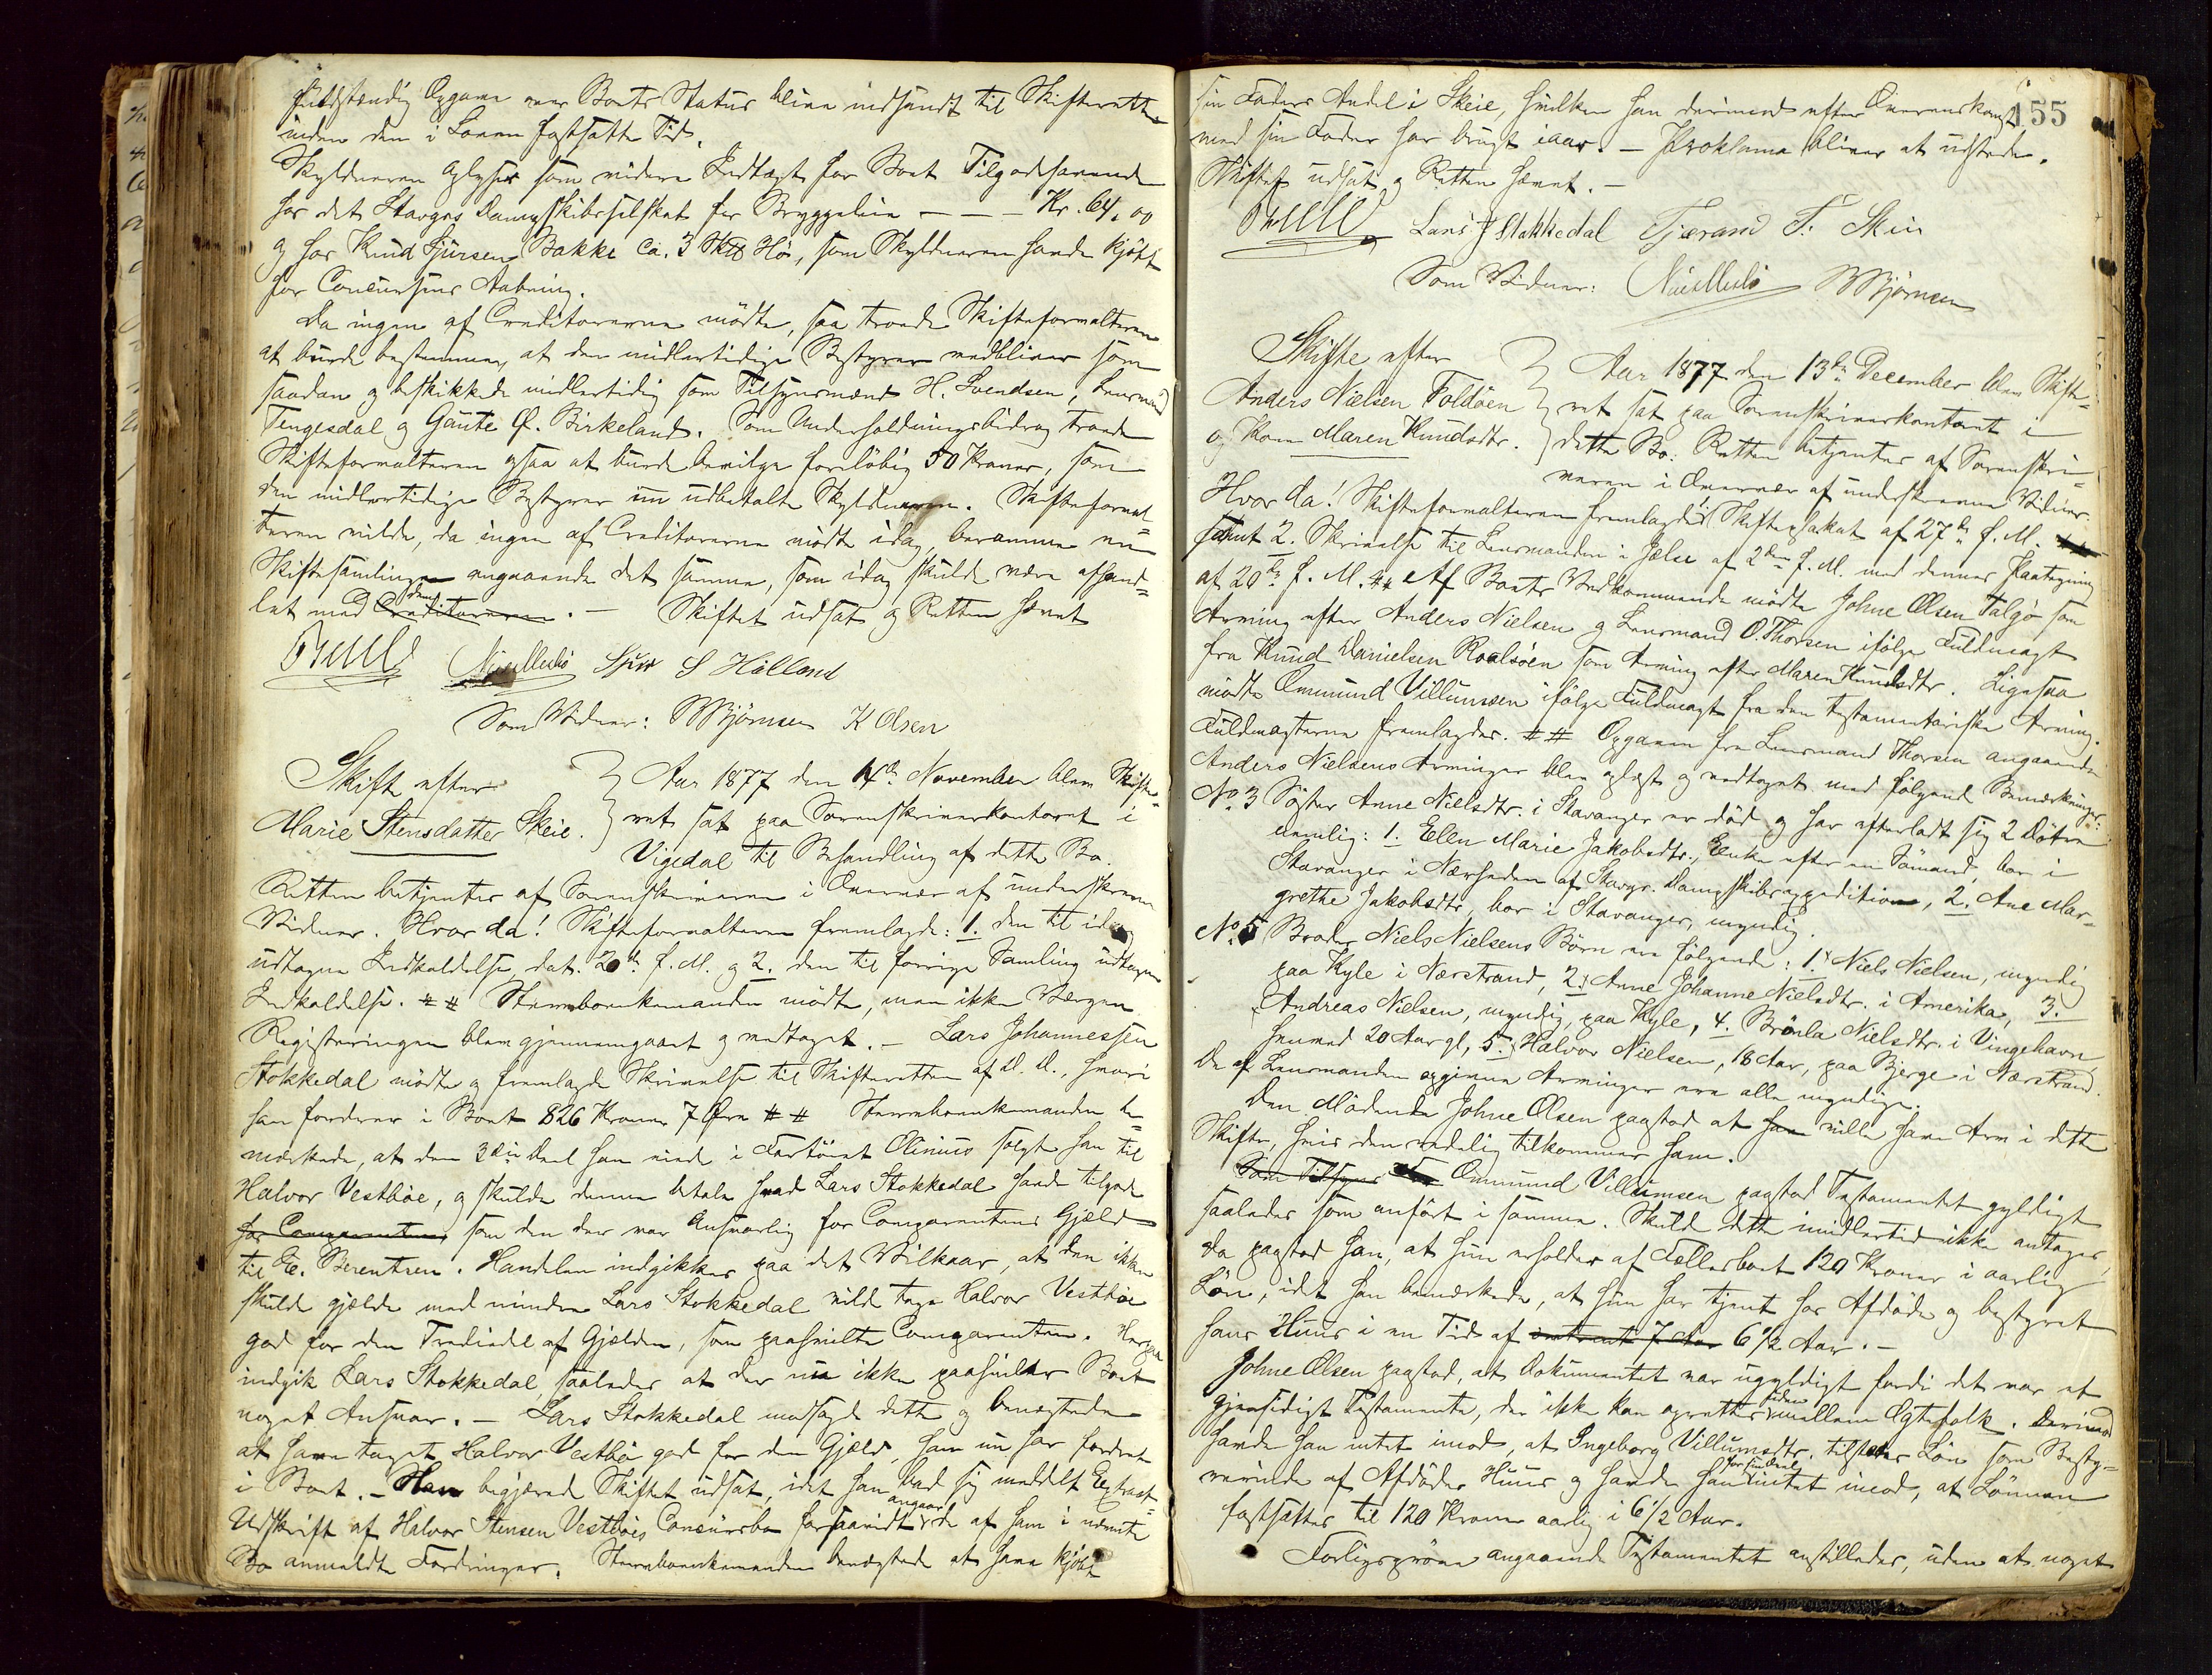 fuldstændig Opgave over Boets Status blive indsendt til Skifteretten
inden den i Loven fastsatte Tid.
Skyldneren oplyser som videre Indtægt for Boet Tilgodehavende
hos det Stavgs Dampskibsselskab for Bryggeleie - - - Kr. 64.00
og hos Knud Sjursen Bakke ca. 3 Sk℔ Hø, som Skyldneren havde kjøbt
før Concursens Aabning.
Da ingen af Creditorerne mødte, saa troede Skifteforvalteren
at burde bestemme, at den midlertidige Bestyrer vedbliver som
saadan og beskikkede midlertidig som Tilsynsmænd H. Svendsen, Lensmand
Tengesdal og Gaute Ø. Birkeland. Som Underholdningsbidrag troede
Skifteforvalteren ogsaa at burde bevilge foreløbig 50 Kroner, som
den midlertidige Bestyrer nu udbetalte Skyldneren. Skifteforval-
teren vilde, da ingen af Creditorerne mødte idag, beramme en
Skiftesamling angaaende det samme, som idag skulde være afhand-
let med dem Creditorerne. - Skiftet udsat og Retten hævet
Sjur S Hålland
Som Vidner: MBjørnsen K Olsen
Skifte efter
Marie Stensdatter Skeie.
Aar 1877 den 14de November blev Skifte-
ret sat paa Sorenskriverkontoret i
Vigedal til Behandling af dette Bo.
Retten betjentes af Sorenskriveren i Overvær af underskrevne
Vidner. Hvor da! Skifteforvalteren fremlagde: 1. den til idag
udtagne Indkaldelse, dat. 20de f. M. og 2. den til forrige Samling udtagne
Indkaldelse. ## Stervboenkemanden mødte, men ikke Værgen
Registreringen blev gjennemgaaet og vedtaget. - Lars Johannessen
Stokkedal mødte og fremlagde Skrivelse til Skifteretten af D. D., hvori
han fordrer i Boet 826 Kroner 7 Øre ## Stervboenkemanden be-
mærkede, at den 3die Deel han eiede i Fartøiet Olinus solgte han til
Halvor Vestbøe, og skulde denne betale hvad Lars Stokkedal havde tilgode
hos Comparenten, som den der var Ansvarlig for Comparentens Gjæld
til E. Berentsen. Handelen indgikkes paa det Vilkaar, at den ikke
skulde gjælde med mindre Lars Stokkedal vilde tage Halvor Vestbøe
god for den Trediedel af Gjælden, som paahvilte Comparenten. Herpaa
indgik Lars Stokkedal, saaledes at der nu ikke paahviler Boet
noget Ansvar. - Lars Stokkedal modsagde dette og benegtede
at have taget Halvor Vestbø god for den Gjæld, han nu har fordret
i Boet. - Han begjærede Skiftet udsat, idet han bad sig meddelt Extract-
Udskrift af Halvor Stensen Vestbøes Concursbo forsaavidt angaar de af ham i nævnte
Bo anmeldte Fordringer. Stervboenkemanden benegtede at have kjøbt
155
sin Faders Andel i Skeie, hvilken han derimod efter Overenskomst
med sin Fader har brugt iaar. - Proklama bliver at udstede.
Skiftet udsat og Retten hævet. -
Lars J Stokkedal Tjerand T. Skeie
Som Vidner: MBjørnsen
Skifte efter
Anders Nielsen Foldøen
og Kone Maren Knudsdtr.
Aar 1877 den 13de December blev Skifte-
ret sat paa Sorenskriverkontoret i
dette Bo. Retten betjentes af Sorenskri-
veren i Overvær af underskrevne Vidner.
Hvor da! Skifteforvalteren fremlagde 1. Skifteplakat af 27de f. M.
samt 2. Skrivelse til Lensmanden i Jælse af 2den f. M. med dennes Paategning
af 20de f. M. ## Af Boets Vedkommende mødte Johne Olsen Talgø som
Arving efter Anders Nielsen og Lensmand O. Thorsen ifølge Fuldmagt
fra Knud Danielsen Roalsøen som Arving efter Maren Knudsdtr. Ligesaa
mødte Ommund Villumsen ifølge Fuldmagt fra den testamentariske Arving.
Fuldmagterne fremlagdes. ## Opgaven fra Lensmand Thorsen angaaende
Anders Nielsens Arvinger blev oplæst og vedtaget med følgende Bemærkninger:
No. 3 Søster Anne Nielsdtr. i Stavanger er død og har efterladt sig 2 Døtre
nemlig: 1. Ellen Marie Jakobsdtr., Enke efter en Sømand, bor i
Stavanger i Nærheden af Stavgr. Dampskibsexpedition, 2. Ane Mar-
grethe Jakobsdtr., bor i Stavanger, myndig.
No. 5 Broder Niels Nielsens Børn ere følgende: 1. Niels Nielsen, myndig
paa Kyle i Nærstrand, 2. Anne Johanne Nielsdtr. i Amerika, 3.
Andreas Nielsen, myndig, paa Kyle, 4. Brønla Nielsdtr. i Vingehavn
henved 20 Aar gl, 5. Halvor Nielsen, 18 Aar, paa Bjerge i Nærstrand.
De af Lensmanden opgivne Arvinger ere alle myndige.
Den Mødende Johne Olsen paastod at han ville have Arv i dette
Skifte, hvis den rædelig tilkommer ham.
Som Tilsyns Ommund Villumsen paastod Testamentet gyldigt
saaledes som anført i samme. Skulde dette imidlertid ikke antages,
da paastod han, at hun erholder af Fællesboet 120 Kroner i aarlig
Løn, idet han bemærkede, at hun har tjent hos Afdøde og bestyret
hans Huus i en Tid af omtrent 7 Aar 6 1/2 Aar. -
Johne Olsen paastod, at Dokumentet var ugyldigt fordi det var et
gjensidigt Testamente, der ikke kan oprettes uden mellem Ægtefolk. Derimod
havde han intet imod, at Ingeborg Villumsdtr. tilstaaes Løn som Besty-
rerinde af Afdødes Huus og havde han for sin Deel intet imod, at Lønnen
fastsættes til 120 Kroner aarlig i 6 1/2 Aar.
Forligsprøve angaaende Testamentet anstilledes, uden at noget